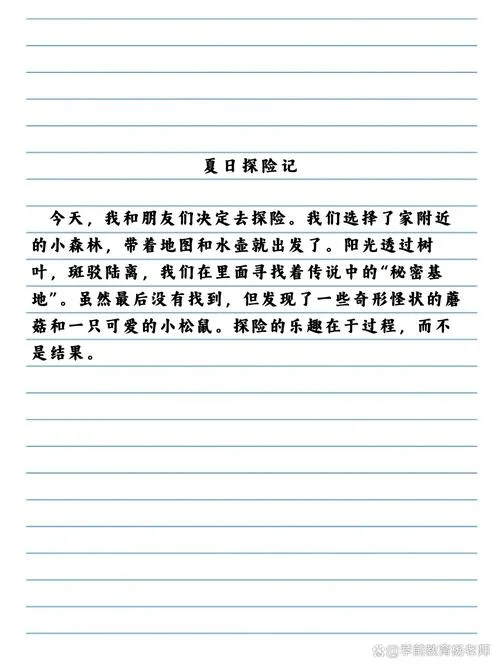 夏日探险记
今天，我和朋友们决定去探险。我们选择了家附近
的小森林，带着地图和水壶就出发了。阳光透过树
叶，斑驳陆离，我们在里面寻找着传说中的“秘密基
地”。虽然最后没有找到，但发现了一些奇形怪状的蘑
菇和一只可爱的小松鼠。探险的乐趣在于过程，而不
是结果。
学前教育杨老师